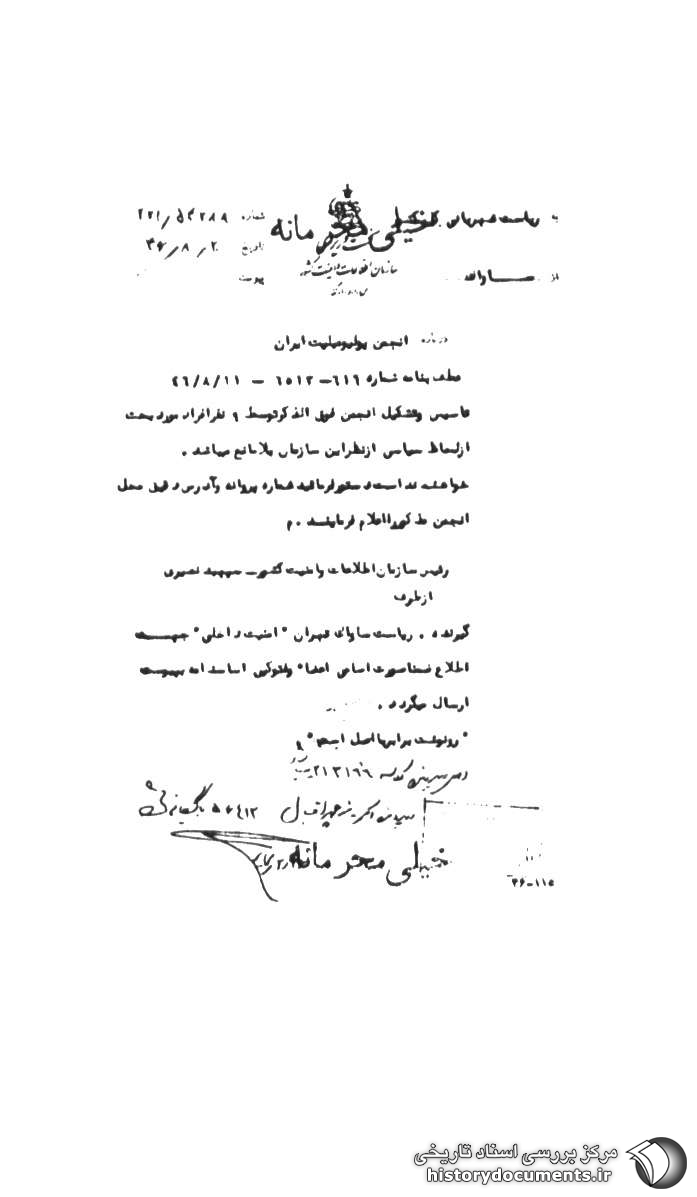 به ریاست شهربانی کل کشور
شماره ۲۲۱/۵۴۲۸۸
خیلی محرمانه
تاریخ ۴۶/۸/۲۰
سازمان اطلاعات و امنیت کشور
از ســاواك
پیوست
درباره انجمن پولیومیلیت ایران
عطف بنامه شماره ۶۱۶–۶۵۱۲ – ۲۶/۸/۱۱
تاسیس وتشکیل انجمن فوق الذکرتوسط ۹ نفرافراد مورد بحث
ازلحاظ سیاسی ازنظراین سازمان بلامانع میباشد .
خواهشمنداست دستورفرمائید شماره پروانه وآدرس دقیق محل
انجمن مذکوررااعلام فرمایند . م
رئیس سازمان اطلاعات وامنیت کشور – سپهبد نصیری
ازطرف
گیرنده . ریاست ساواك تهران " امنیت داخلی " جهــت
اطلاع ضمنا صورت اسامی اعضا" وفتوکپی اساسنامه بپیوست
ارسال میگردد .
" رونوشت برابربااصل است "
۲۱۳۱۶۶
۵۷۶۱۳
خیلی محرمانه
۳۶-۱۱۵
مرکز بررسی اسناد تاریخی
historydocuments.ir